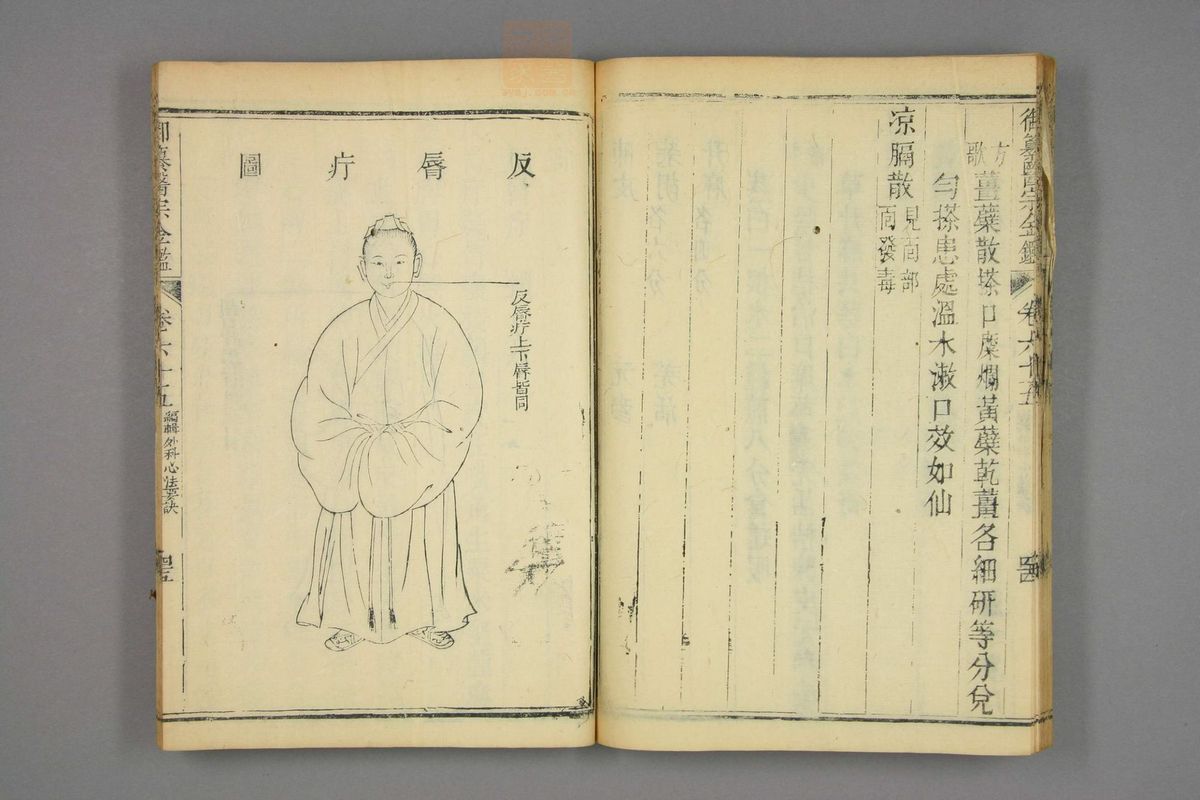 御纂醫宗金鑑 卷六十五
方歌
薑蘗散搽口糜爛黃蘗乾薑各細研等分兌
勻搽患處溫水漱口效如仙
凉膈散 見面部面發毒
反脣疔圖
反脣疔上下脣皆同
御纂醫宗金鑑 卷六十五 編輯外科心法要訣